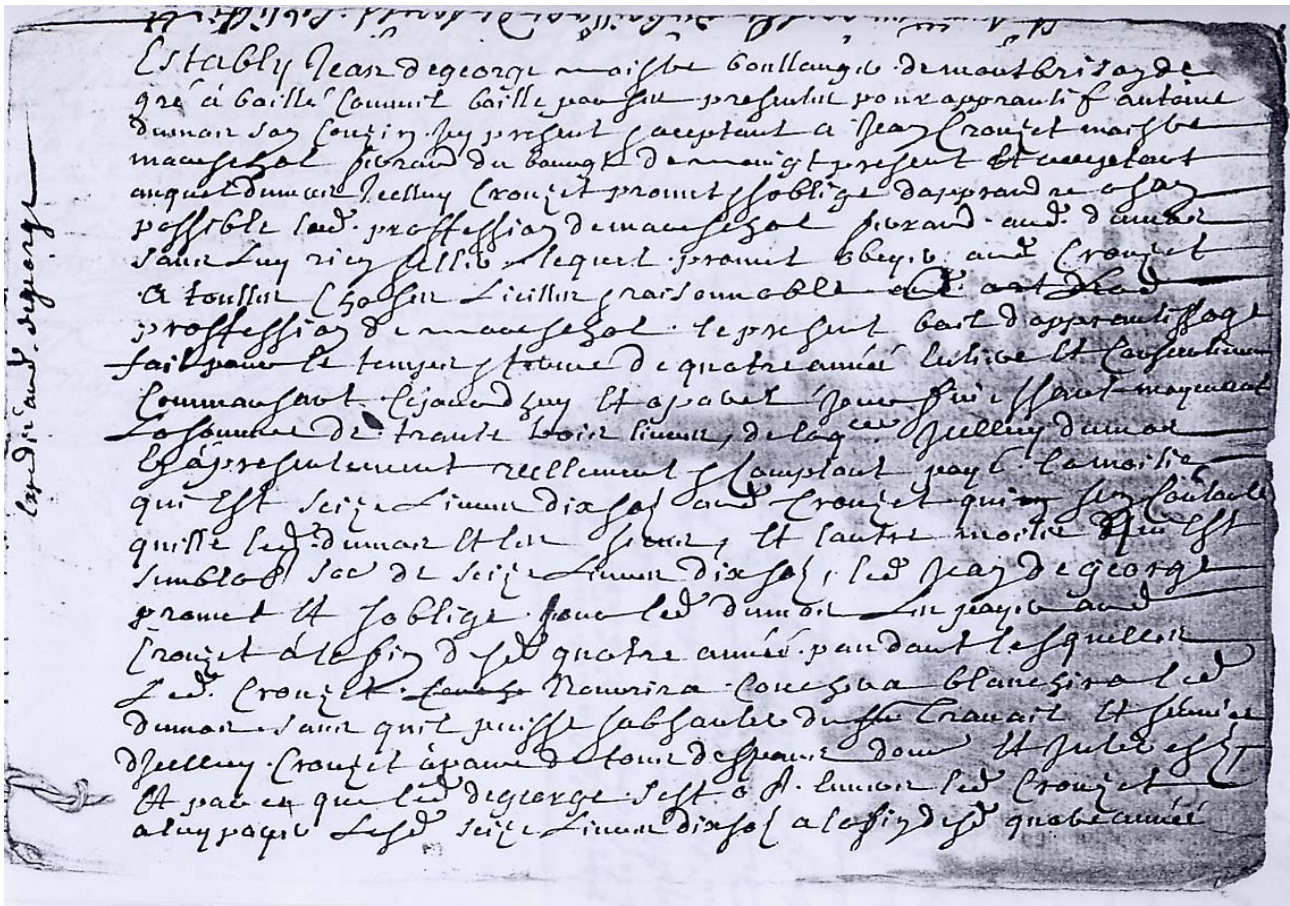 Estably Jean degeorge maistre boullanger de montbrison de
gré à baillé Comme il baille par ses presentes pour apprantif antoine
dumas son Couzin icy present & aceptant a Jean Crouzet maistre
mareschal ferrand du bourg de present Et acceptant
auquel dumas Jcelluy Crouzet promet & soblige dapprandre a son
possible lad. proffession de mareschal ferrand aud. dumas
sans luy rien seller lequel promet obeyr aud Crouzet
A touttes Choses licittes & raisonnable
proffession de mareschal. le present bail dapprantissage
fait pour le temps & terme de quatre année Entiere Et Consecutives
Commansant Cejourdhuy Et apareil jour finissant moyenant
La somme de trante trois livres, de laqlle Jcelluy dumas
Et àpresentement reellement & Comptant payé la moitie
qui Est seize livres dix solz aud Crouzet qui sen Contante
quitte led. dumas Et les siens, Et lautre moitie qui Est
semblable so de seize livres dix solz, led Jean degeorge
promet Et soblige pour led dumas les payer aud
Crouzet à la fin desd quatre année pandant lesquelles
Led. Crouzet Nourrira Couchera blanchira led
dumas sans quil puisse sabsanter du travail Et service
dJcelluy Crouzet àpaine de tous despans dom Et Jnterestz
Et par ce que led degeorge sest obl. Envers led Crouzet
a luy payer Lesd seize livres dix solz a la fin desd quatre année
Expédié aud. degeorge